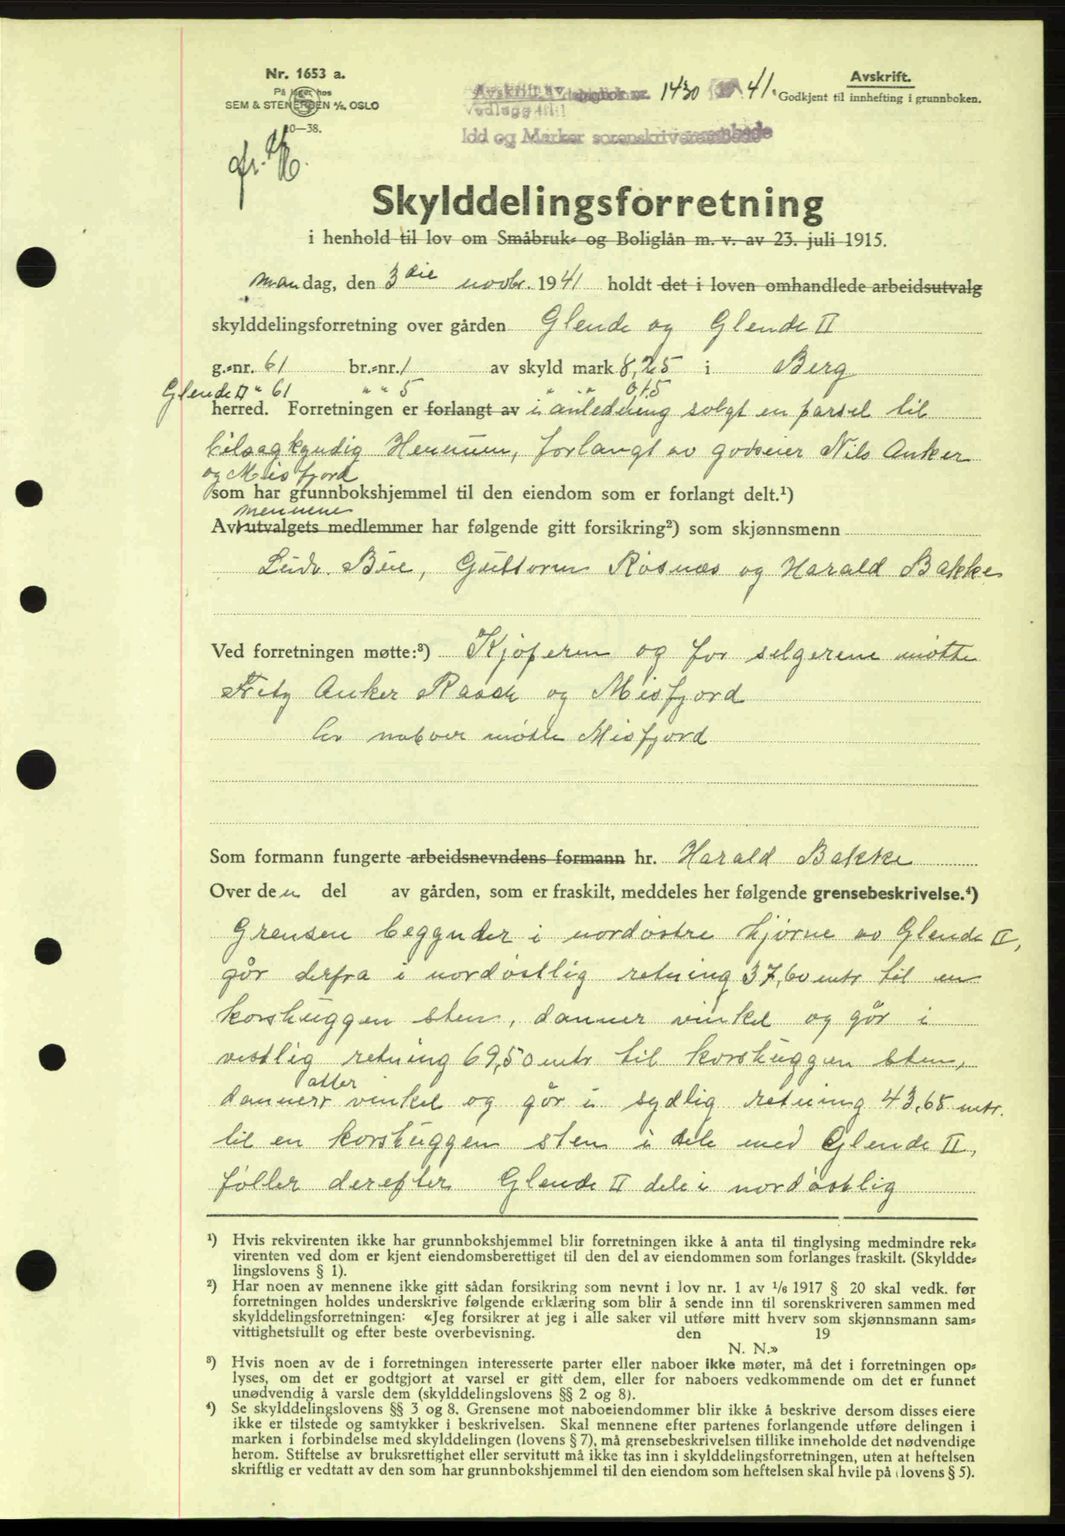 Nr. 1653 a.
På lager hos
SEM & STENERSEN A/S, OSLO
10—38.
Avskrift av dagbok nr. 1430 1941.
Vedlegg til
Idd og Marker sorenskriverembede
Avskrift.
Godkjent til innhefting i grunnboken.
Skylddelingsforretning
i henhold til lov om Småbruk- og Boliglån m. v. av 23. juli 1915.
mandag, den 3die novbr. 1941 holdt det i loven omhandlede arbeidsutvalg
skylddelingsforretning over gården Glende og Glende II
g.-nr. 61 br.-nr. 1 av skyld mark 8,25 i Berg
Glende II " 61 " " 5 " " 0,15
herred. Forretningen er forlangt av i anledning solgt en parsel til
bilsagkyndig Hennum, forlangt av godseier Nils Anker
og Misfjord
som har grunnbokshjemmel til den eiendom som er forlangt delt.¹)
mennene
Av utvalgets medlemmer har følgende gitt forsikring²) som skjønnsmenn
Ludv. Bue, Guttorm Rosnæs og Harald Bakke
Ved forretningen møtte:³) Kjøperen og for selgerene møtte
Fritz Anker Rasch og Misfjord
Av naboer møtte Misfjord
Som formann fungerte arbeidsnevndens formann hr. Harald Bakke
Over den del av gården, som er fraskilt, meddeles her følgende grensebeskrivelse.⁴)
Grensen begynder i nordøstre hjørne av Glende II,
går derfra i nordøstlig retning 37,60 mtr til en
korshuggen sten, danner vinkel og går i
vestlig retning 69,50 mtr til korshuggen sten,
atter
danner vinkel og går i sydlig retning 43,65 mtr.
til en korshuggen sten i dele med Glende II,
føller derefter Glende II dele i nordøstlig
¹) Hvis rekvirenten ikke har grunnbokshjemmel blir forretningen ikke å anta til tinglysing medmindre rek-
virenten ved dom er kjent eiendomsberettiget til den del av eiendommen som forlanges fraskilt. (Skyldde-
lingslovens § 1).
²) Har noen av mennene ikke gitt sådan forsikring som nevnt i lov nr. 1 av 1/6 1917 § 20 skal vedk. før
forretningen holdes underskrive følgende erklæring som blir å sende inn til sorenskriveren sammen med
skylddelingsforretningen: «Jeg forsikrer at jeg i alle saker vil utføre mitt hverv som skjønnsmann sam-
vittighetsfullt og efter beste overbevisning. den 19
N. N.»
³) Hvis noen av de i forretningen interesserte parter eller naboer ikke møter, må det i forretningen op-
lyses, om det er godtgjort at varsel er gitt dem, eller for naboers vedkommende om det er funnet
unødvendig å varsle dem (skylddelingslovens §§ 2 og 8).
⁴) Se skylddelingslovens §§ 3 og 8. Grensene mot naboeiendommer blir ikke å beskrive dersom disses eiere
ikke er tilstede og samtykker i beskrivelsen. Skal mennene efter partenes forlangende utføre delingen i
marken i forbindelse med skylddelingen (lovens § 7), må grensebeskrivelsen tillike inneholde det nødvendige
herom. Stiftelse av bruksrettighet eller servitutt må ikke tas inn i skylddelingsforretningen, uten at heftelsen
skriftlig er vedtatt av den som har grunnbokshjemmel til den eiendom som heftelsen skal hvile på (lovens § 5).